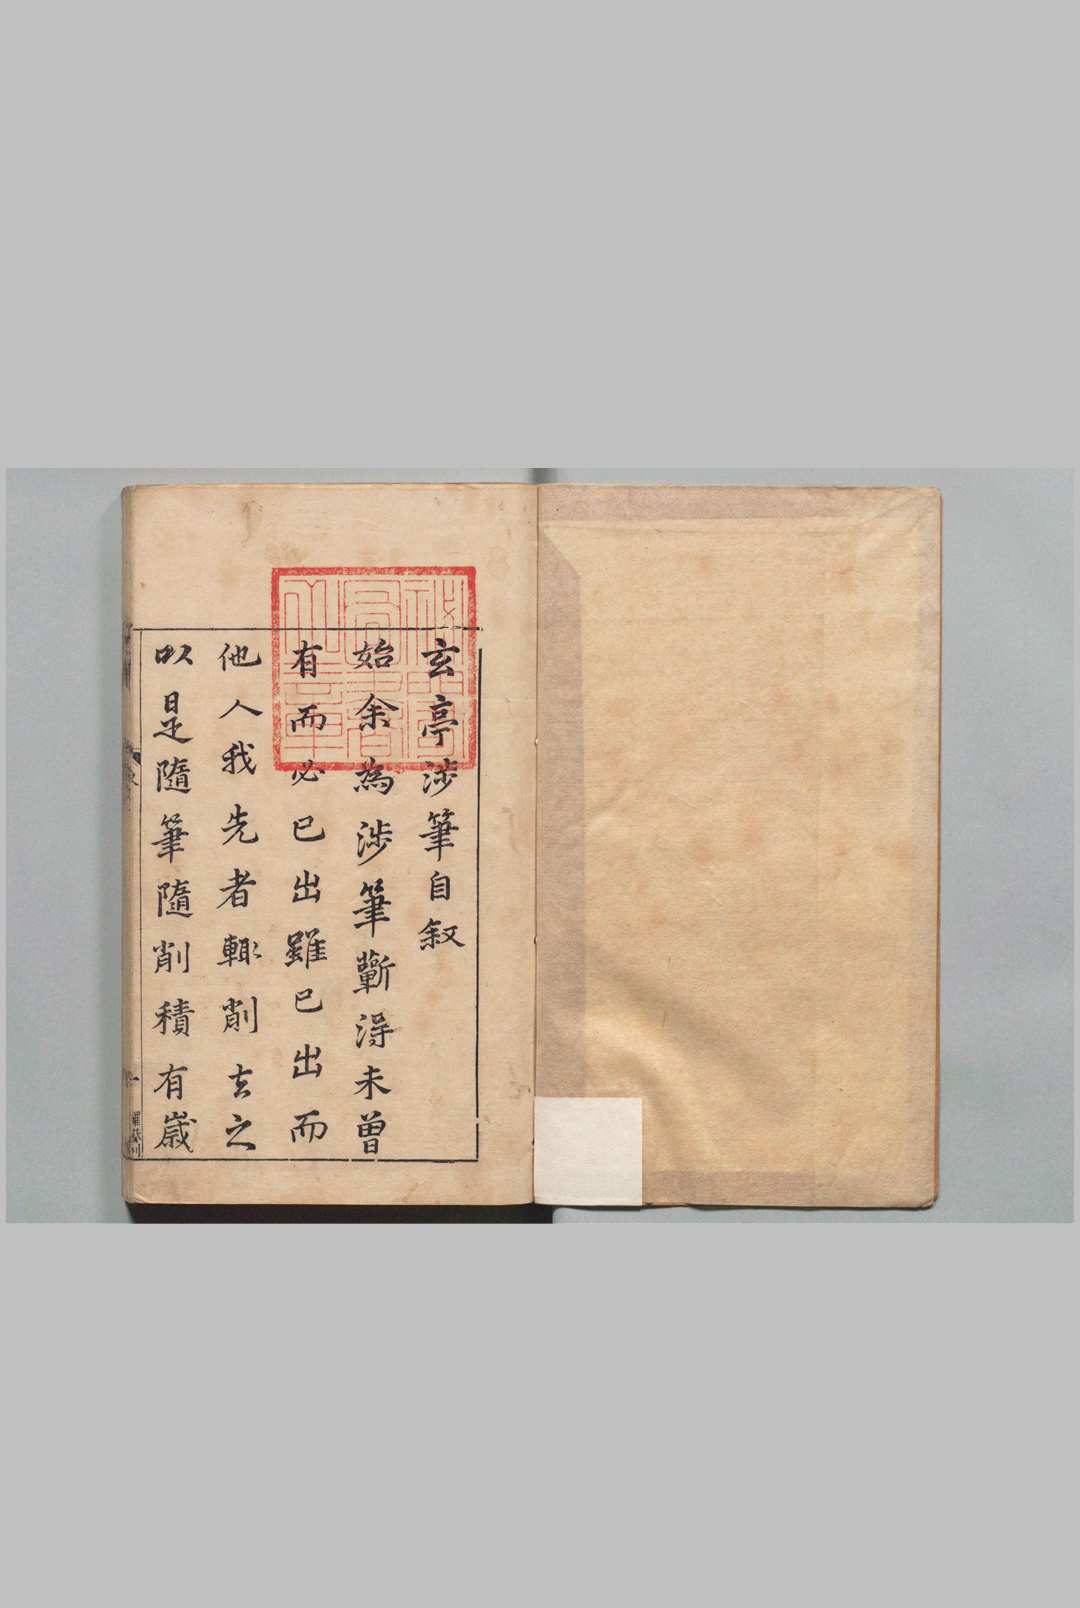 玄亭涉筆自叙
始余為涉筆蘄淂未曾
有而必已出雖已出而
他人我先者輒削去之
以是隨筆隨削積有歲
祕閣圖書之章